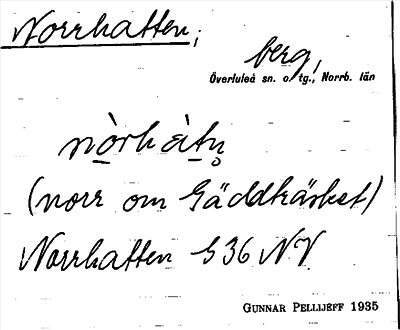 Norrhatten,
berg,
Överluleå sn. o. tg., Norrb. län
nòrhàtn̥
(norr om Gäddkäsket)
Norrhatten G 36 NV
GUNNAR PELLIJEFF 1935